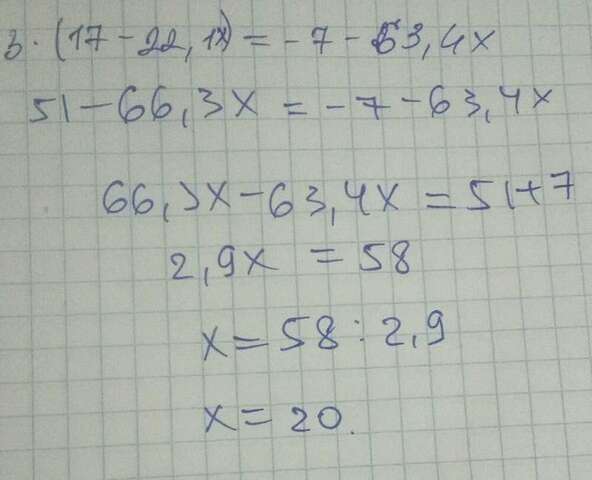 3 · (17 - 22,1x) = - 7 - 63,4x
51 - 66,3x = - 7 - 63,4x
66,3x - 63,4x = 51 + 7
2,9x = 58
x = 58 : 2,9
x = 20.